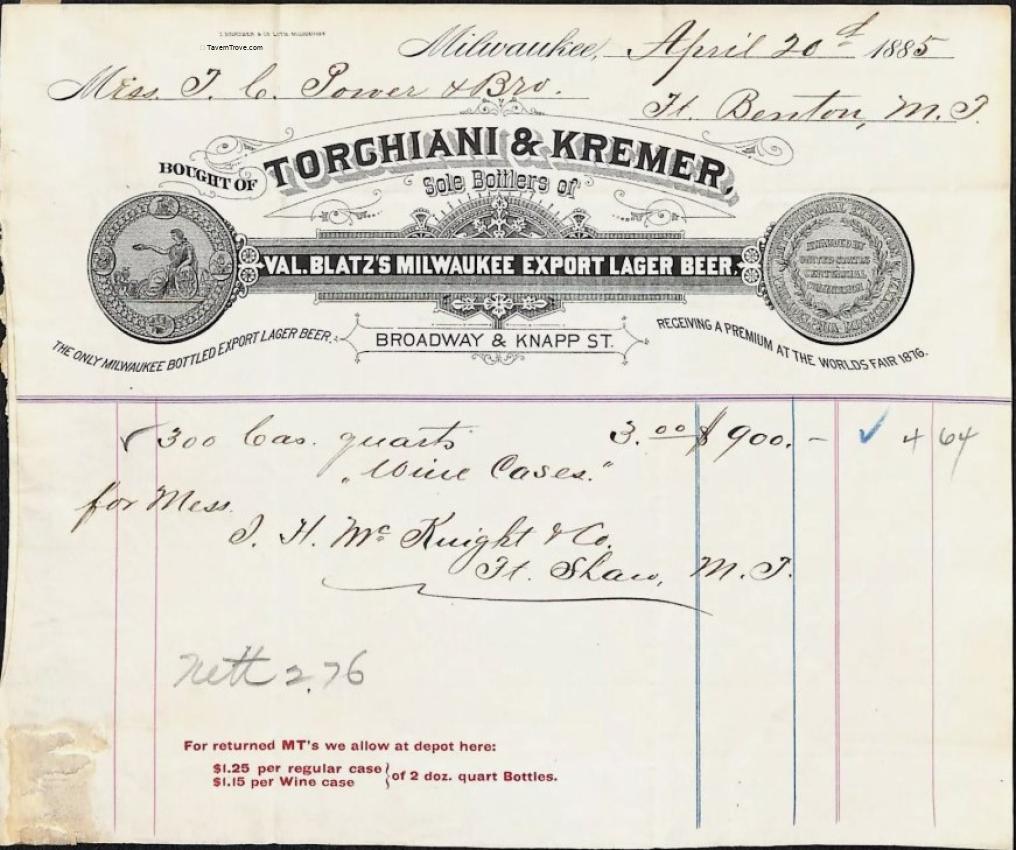 TavernTrove.com
Milwaukee, April 20d 1885
Mess. T. C. Power & Bro.
Ft. Benton, M. T.
BOUGHT OF TORCHIANI & KREMER,
Sole Bottlers of
VAL. BLATZ'S MILWAUKEE EXPORT LAGER BEER,
AWARDED BY
UNITED STATES
CENTENNIAL
COMMISSION
THE ONLY MILWAUKEE BOTTLED EXPORT LAGER BEER,
BROADWAY & KNAPP ST.
RECEIVING A PREMIUM AT THE WORLDS FAIR 1876.
✓ 300 Cas. quarts 3.00 $ 900. - ✓ 4 64
"Wine Cases."
for Mess.
J. H. McKnight & Co.
Ft. Shaw, M. T.
Nett 2.76
For returned MT's we allow at depot here:
$1.25 per regular case
$1.15 per Wine case } of 2 doz. quart Bottles.